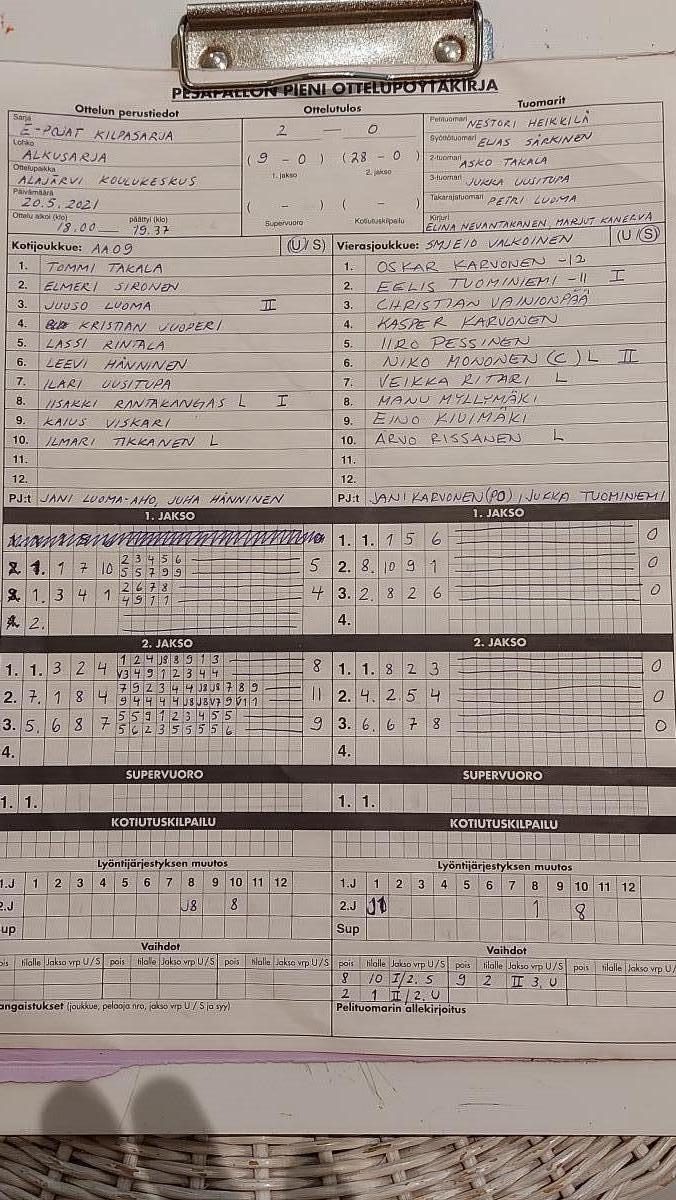 PESÄPALLON PIENI OTTELUPÖYTÄKIRJA
Ottelun perustiedot
Sarja
E-POJAT KILPASARJA
Lohko
ALKUSARJA
Ottelupaikka
ALAJÄRVI KOULUKESKUS
Päivämäärä
20.5.2021
Ottelu alkoi (klo) 18.00 päättyi (klo) 19.37
Ottelutulos
2 — 0
( 9 - 0 ) ( 28 - 0 )
1. jakso 2. jakso
( - ) ( - )
Supervuoro Kotiutuskilpailu
Tuomarit
Pelituomari NESTORI HEIKKILÄ
Syöttötuomari ELIAS SÄRKINEN
2-tuomari ASKO TAKALA
3-tuomari JUKKA UUSITUPA
Takarajatuomari PETRI LUOMA
Kirjuri
ELINA NEVANTAKANEN, MARJUT KANERVA
Kotijoukkue: AA09 (U/S)
1. TOMMI TAKALA
2. ELMERI SIRONEN
3. JUUSO LUOMA II
4. KRISTIAN VUOPERI
5. LASSI RINTALA
6. LEEVI HÄNNINEN
7. ILARI UUSITUPA
8. IISAKKI RANTAKANGAS L I
9. KAIUS VISKARI
10. ILMARI TIKKANEN L
11.
12.
PJ:t JANI LUOMA-AHO, JUHA HÄNNINEN
Vierasjoukkue: SMJE10 VALKOINEN (U/S)
1. OSKAR KARVONEN -12
2. EELIS TUOMINIEMI -11 I
3. CHRISTIAN VAINIONPÄÄ
4. KASPER KARVONEN
5. IIRO PESSINEN
6. NIKO MONONEN (C) L II
7. VEIKKA RITARI L
8. MANU MYLLYMÄKI
9. EINO KIVIMÄKI
10. ARVO RISSANEN L
11.
12.
PJ:t JANI KARVONEN (PO), JUKKA TUOMINIEMI
1. JAKSO
1. 1 7 10 2 3 4 5 6 5
5 5 7 9 9
1. 3 4 1 2 6 7 8 4
4 9 1 1
2.
1. JAKSO
1. 1. 1 5 6 0
2. 8. 10 9 1 0
3. 2. 8 2 6 0
4.
2. JAKSO
1. 1. 3 2 4 1 2 4 J8 8 9 1 3 8
V3 4 9 1 2 3 4 4
2. 7. 1 8 4 7 9 2 3 4 4 J8 J8 7 8 9 11
3. 5. 6 8 7 5 5 9 1 2 3 4 5 5 9
5 6 2 3 5 5 5 5 6
4.
2. JAKSO
1. 1. 8 2 3 0
2. 4. 2 5 4 0
3. 6. 6 7 8 0
4.
SUPERVUORO
1. 1.
SUPERVUORO
1. 1.
KOTIUTUSKILPAILU
KOTIUTUSKILPAILU
Lyöntijärjestyksen muutos
1.J 1 2 3 4 5 6 7 8 9 10 11 12
2.J J8 8
Sup
Lyöntijärjestyksen muutos
1.J 1 2 3 4 5 6 7 8 9 10 11 12
2.J 1 8
Sup
Vaihdot
pois tilalle Jakso vrp U/S pois tilalle Jakso vrp U/S pois tilalle Jakso vrp U/S
Vaihdot
pois tilalle Jakso vrp U/S pois tilalle Jakso vrp U/S pois tilalle Jakso vrp U/
8 10 I/2. S 9 2 II 3. U
2 1 II/2. U
angaistukset (joukkue, pelaaja nro, jakso vrp U / S ja syy)
Pelituomarin allekirjoitus